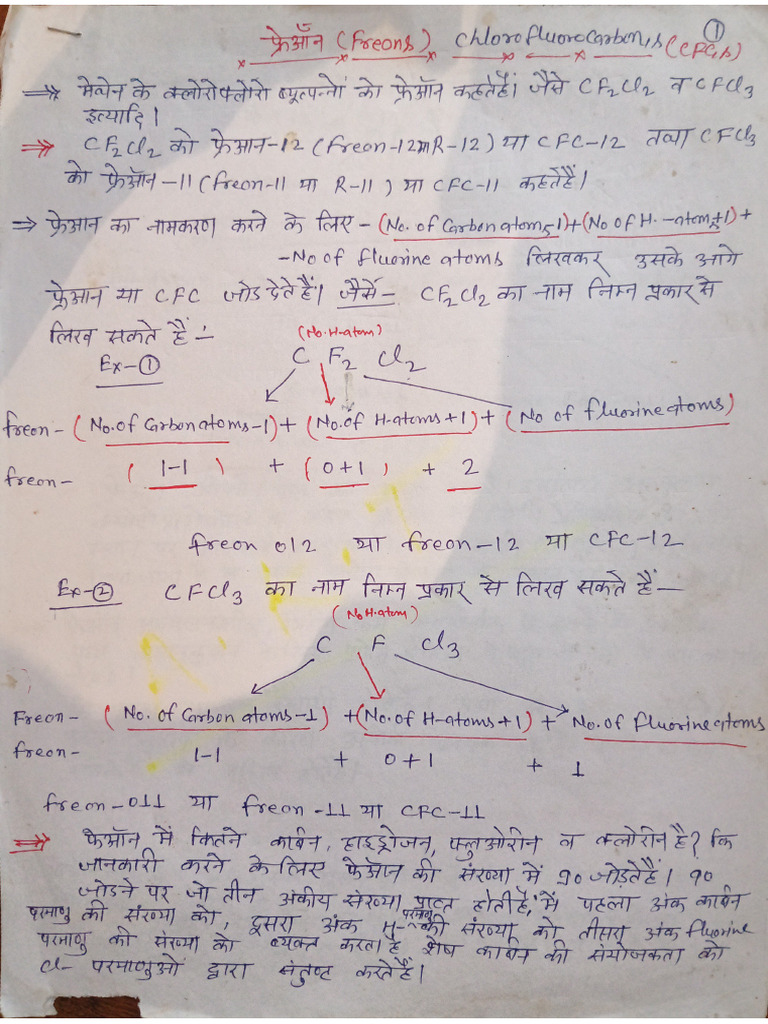 ①
फ्रेऑन (Freons) Chlorofluorocarbon,s (CFC,s)
⇒ मेथेन के क्लोरोफ्लोरो व्युत्पन्नों को फ्रेऑन कहतेहैं। जैसे CF2Cl2 व CFCl3
इत्यादि।
⇒ CF2Cl2 को फ्रेआन-12 (freon-12 या R-12) या CFC-12 तथा CFCl3
को फ्रेऑन-11 (freon-11 या R-11) या CFC-11 कहतेहैं।
⇒ फ्रेआन का नामकरण करने के लिए - (No. of Carbon atoms-1)+(No of H.-atoms+1)+
-No of fluorine atoms लिखकर उसके आगे
फ्रेआन या CFC जोड देते हैं। जैसे- CF2Cl2 का नाम निम्न प्रकार से
लिख सकते हैं :-
(No. H-atom)
Ex-① C F2 Cl2
freon- (No. of Carbon atoms-1) + (No. of H-atoms+1) + (No of fluorine atoms)
freon- (1-1) + (0+1) + 2
freon 012 या freon-12 या CFC-12
Ex-② CFCl3 का नाम निम्न प्रकार से लिख सकते हैं-
(No H-atom)
C F Cl3
Freon- (No. of Carbon atoms-1) + (No. of H-atoms+1) + No. of fluorine atoms
freon- 1-1 + 0+1 + 1
freon-011 या freon-11 या CFC-11
⇒ फ्रेऑन में कितने कार्बन, हाइड्रोजन, फ्लुओरीन व क्लोरीन है? कि
जानकारी करने के लिए फ्रेऑन की संख्या में 90 जोड़तेहैं। 90
जोडने पर जो तीन अंकीय संख्या प्राप्त होती है, में पहला अंक कार्बन
परमाणु की संख्या को, दूसरा अंक H-परमाणु की संख्या को तीसरा अंक fluorine
परमाणु की संख्या को व्यक्त करता है शेष कार्बन की संयोजकता को
Cl- परमाणुओं द्वारा संतुष्ट करतेहैं।